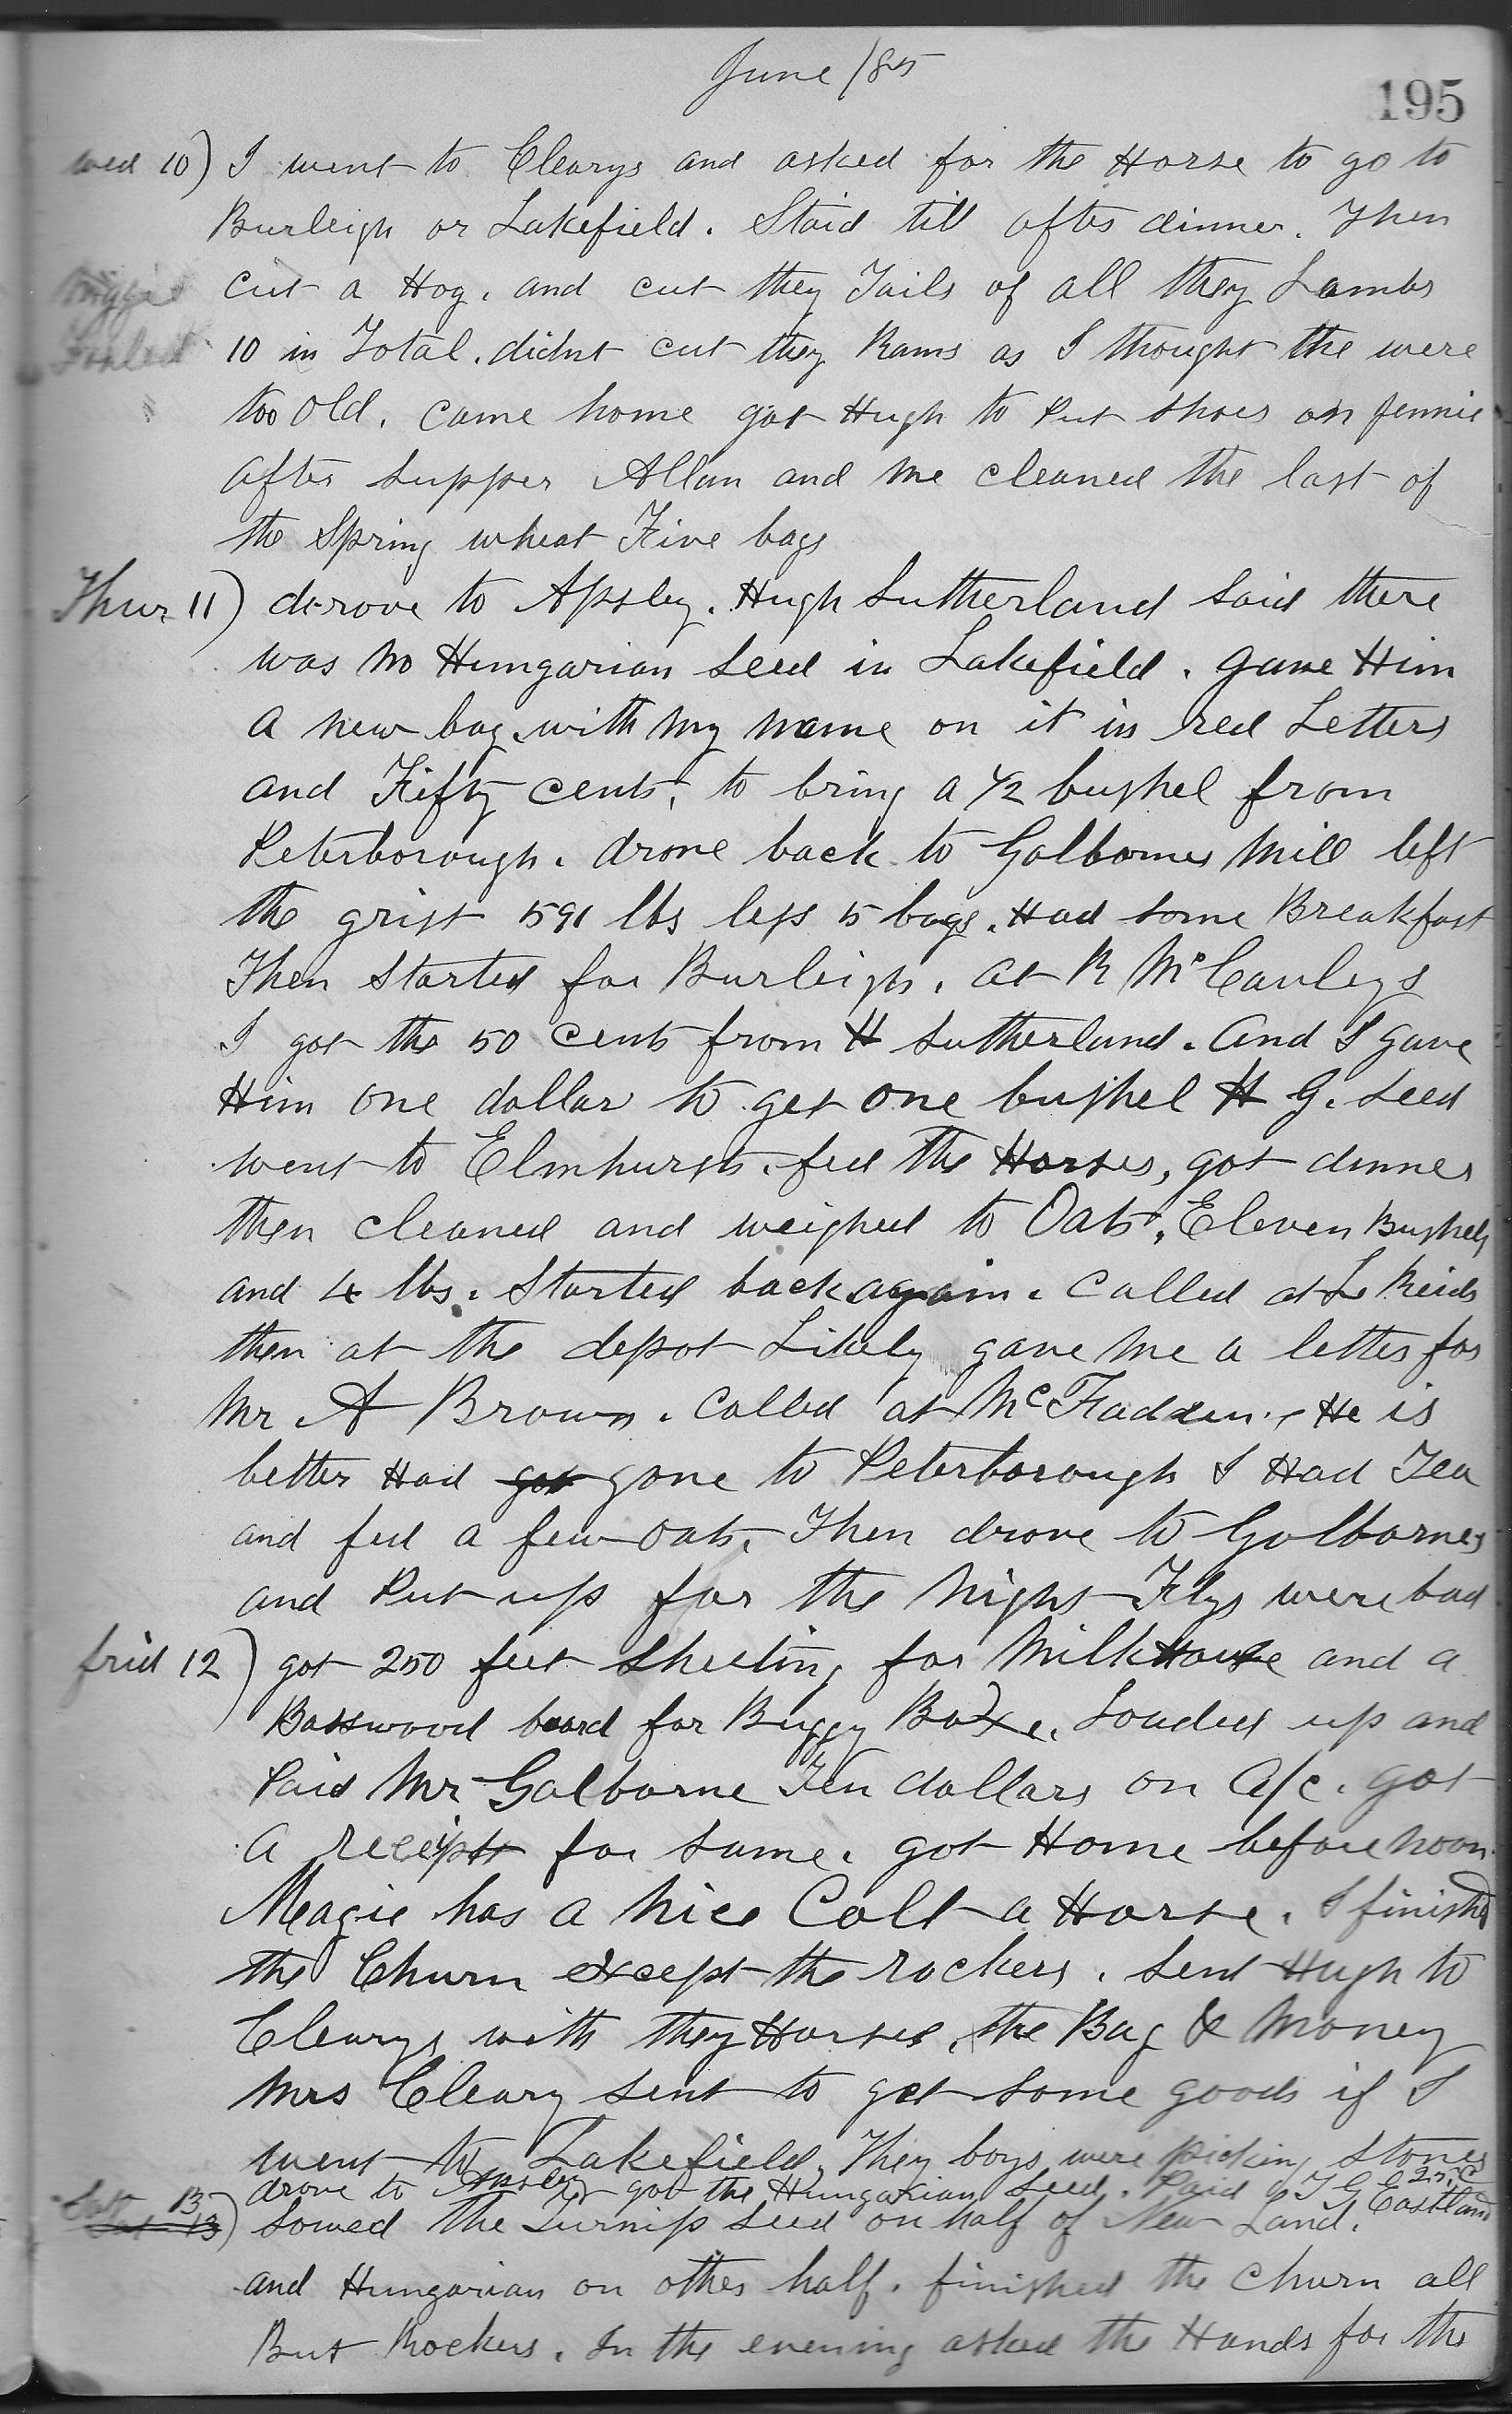 June /85
195
wed 10) I went to Clearys and asked for the Horse to go to
Burleigh or Lakefield. Staid till after dinner. Then
cut a Hog. and cut they Tails of all they Lambs
Foaled 10 in Total. didnt cut they Rams as I thought the were
too old. came home got Hugh to Put shoes on Jennie
after supper Allan and me cleaned the last of
the Spring wheat Five bags
Thur 11) drove to Apsley. Hugh Sutherland said there
was no Hungarian seed in Lakefield. gave Him
a new bag with my name on it in red Letters
and Fifty cents, to bring a 1/2 bushel from
Peterborough. drove back to Golbornes Mill left
the grist 591 lbs less 5 bags. Had some Breakfast
Then started for Burleigh. at R McCauleys
I got the 50 cents from H Sutherland. And I gave
Him one dollar to get one bushel H G. seed
went to Elmhursts. fed the Horses, got dinner
then cleaned and weighed to Oats. Eleven Bushels
and 4 lbs. Started back again. Called at L Reids
then at the depot Likely gave me a letter for
Mr A Brown. Called at McFaddens He is
better Had got gone to Peterborough I Had Tea
and fed a few oats. Then drove to Golbornes
and Put up for the Night Flys were bad
frid 12) got 250 feet sheeting for Milkhouse and a
Basswood board for Buggy Boxe. Loaded up and
Paid Mr Golborne Ten dollars on a/c. got
a receipt for same. got Home before noon.
Magie has a nice Colt a Horse. I finished
the Churn except the rockers. sent Hugh to
Clearys with they Horses, the Bag & Money
Mrs Cleary sent to get some goods if I
went to Lakefield. They boys were picking stones
drove to Apsley got the Hungarian Seed. Paid T G Eastland 25c
Sat 13) Sowed the Turnip seed on half of New Land.
and Hungarian on other half. finished the churn all
But Rockers. In the evening asked the Hands for the